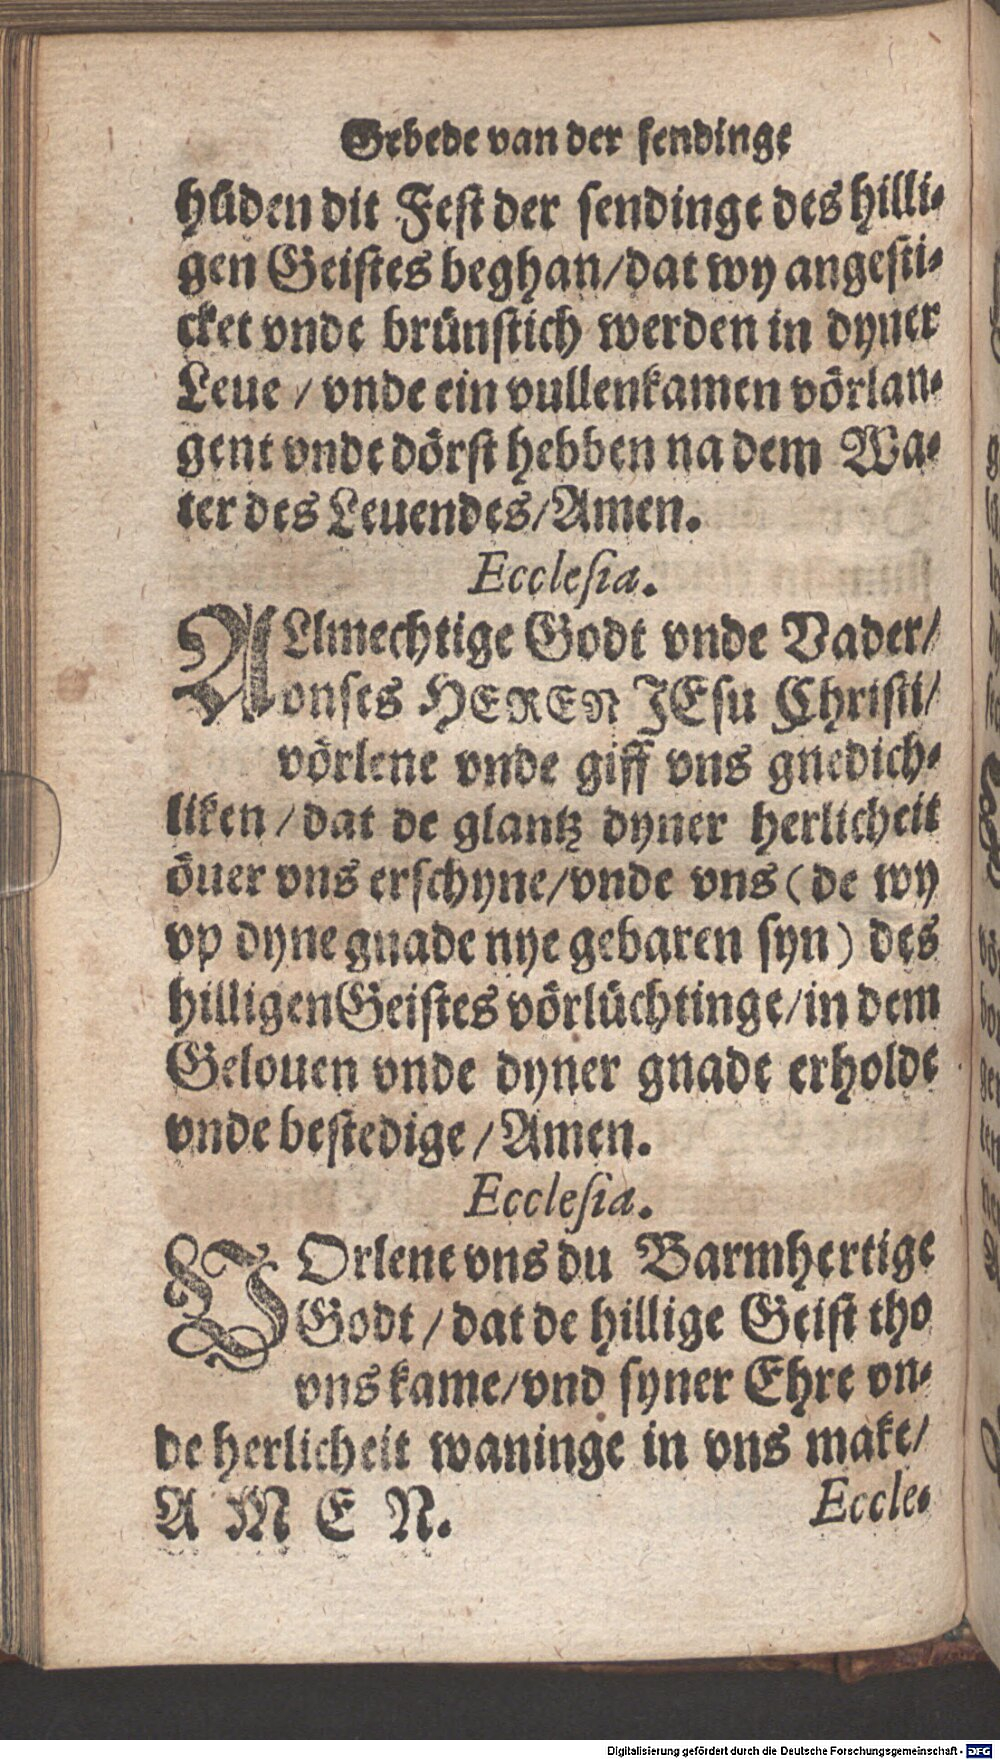 Gebede van der sendinge
hüden dit Fest der sendinge des hilli-
gen Geistes beghan/dat wy angesti-
cket vnde brünstich werden in dyner
Leue / vnde ein vullenkamen vörlan-
gent vnde dörst hebben na dem Wa-
ter des Leuendes/Amen.
Ecclesia.
ALmechtige Godt vnde Vader/
vnses HEREN JEsu Christi/
vörlene vnde giff vns gnedich-
liken / dat de glantz dyner herlicheit
öuer vns erschyne/vnde vns (de wy
vp dyne gnade nye gebaren syn) des
hilligen Geistes vörlüchtinge/in dem
Gelouen vnde dyner gnade erholde
vnde bestedige / Amen.
Ecclesia.
VOrlene vns du Barmhertige
Godt / dat de hillige Geist tho
vns kame/vnd syner Ehre vn-
de herlicheit waninge in vns make/
A M E N.
Eccle-
Digitalisierung gefördert durch die Deutsche Forschungsgemeinschaft - DFG